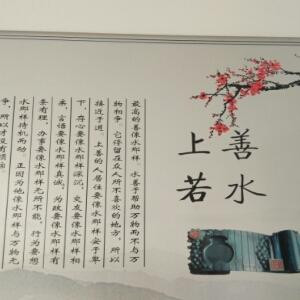 上善
若水
最高的善像水那样。水善于帮助万物而不与万
物相争。它停留在众人所不喜欢的地方，所以
接近于道。上善的人居住要像水那样安于卑
下，存心要像水那样深沉，交友要像水那样相
亲，言语要像水那样真诚，为政要像水那样有
条有理，办事要像水那样无所不能，行为要想
水那样待机而动。正因为他像水那样与万物无
争，所以才没有烦恼